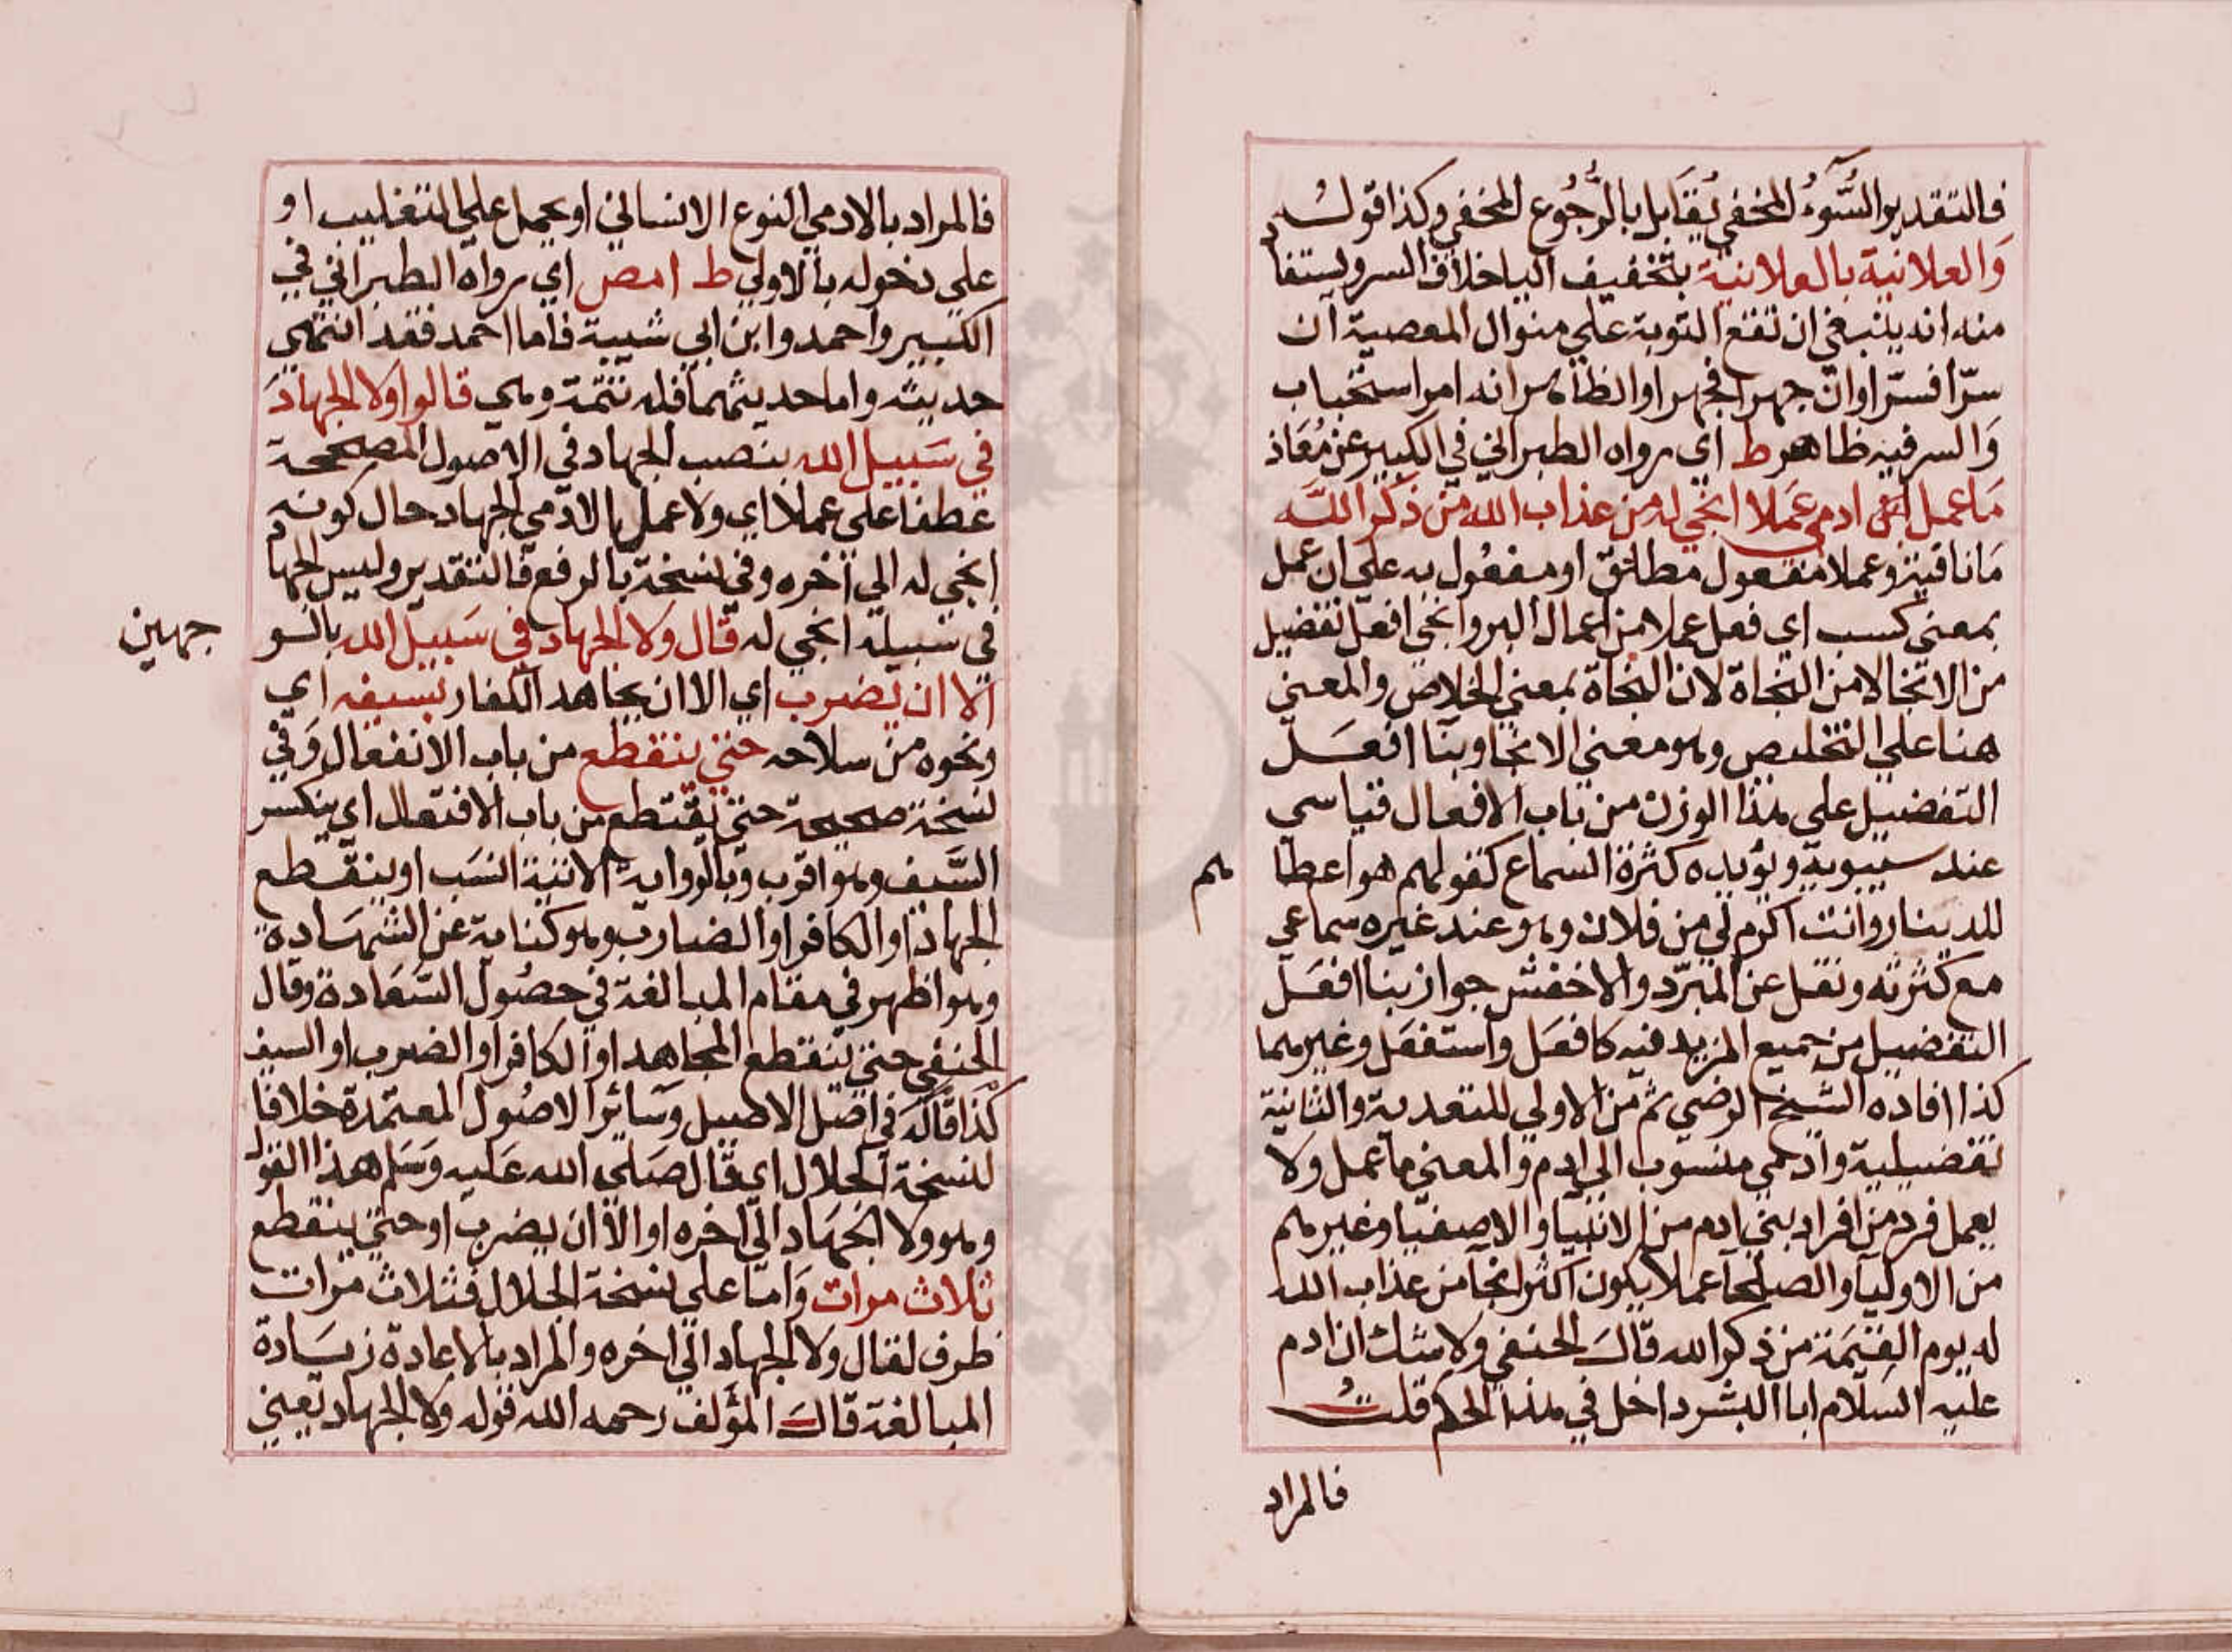 فالتقدير والسُّوءُ المخفي يُقَابل بالرُّجُوع المخفي وكذا قوله
وَالعلانية بالعلانية بتخفيف اليا خلاف السر ويستفا
منه انه ينبغي ان تقع التوبة علي منوال المعصية ان
سرّا فسرّا وان جهرا فجهرا والظاهر انه امر استحباب
وَالسر فيه ظاهر ط اي رواه الطبراني في الكبير عن مُعَاذ
مَا عمل ادمي عَملا انجي له من عذاب الله من ذكر اللّه
مَا نافية وعملا مفعول مطلق او مفعُول به علي ان عمل
بمعني كسب اي فعل عملا من اعمال البر وانجي افعل تفضيل
من الانجا لا من النجاة لان النجاة بمعني الخلاص والمعني
هنا علي التخليص وهو معني الانجا وبنا افعَل
التفضيل علي هذا الوزن من باب الافعال قياسي
عند سيبويه ويؤيده كثرة السماع كقولهم هو اعطا
هم
للدينار وانت اكرم لي من فلان وهو عند غيره سماعي
مع كثرته ونقل عن المبرّد والاخفش جواز بنا افعَل
التفضيل من جميع المزيد فيه كافعَل واستفعَل وغيرهما
كذا افاده الشيخ الرضي ثم من الاولي للتعدية والثانية
تفضيلية وادمي منسوب الي ادم والمعني ما عمل ولا
يعمل فرد من افراد بني ادم من الانبيا والاصفيا وغيرهم
من الاوليا والصلحا عملا يكون اكثر انجا من عذاب الله
له يوم القيمَة من ذكر الله قالَ الحنفي ولا شك ان ادم
عليه السلام ابا البشر داخل في هذا الحكم قلتُ
فالمراد
فالمراد بالادمي النوع الانساني او يحمل علي التغليب او
علي دخوله بالاولي ط ا مص اي رواه الطبراني في
الكبير واحمد وابن ابي شيبة فاما احمد فقد انتهي
حديثه واما حديثهما فله تتمة وهي قالوا ولا الجهادَ
في سَبيل الله بنصب الجهاد في الاصول المصححة
عطفا علي عملا اي ولا عمل بالادمي الجهاد حال كونه
انجي له الي اخره وفي نسخة بالرفع فالتقدير وليس الجها
في سبيله انجي له قال ولا الجهاد في سَبيل الله بالسو
جهين
الا ان يضرب اي الا ان يجاهد الكفار بسيفه اي
ونحوه من سلاحه حتي ينقطع من باب الانفعال وَفي
نسخة صحيحة حتي يقتطع من باب الافتعال اي ينكسر
السَّيف وهو اقرب وبالرواية الاتية انسَب او ينقطع
الجهاد او الكافر او الضارب وهو كناية عن الشهَادة
وهو اظهر في مقام المبالغة في حصُول السَّعَادة وقال
الحنفي حتي ينقطع المجاهد او الكافر او الضرب او السيف
كذا قاله في اصل الاصيل وسَائر الاصُول المعتمدة خلافا
لنسخة الجلال اي قال صَلي الله عَليه وَسَلم هذا القول
وهو ولا الجهَاد الي اخره او الا ان يضرب او حتي ينقطع
ثلاث مرات وَامّا علي نسخة الجلال فثلاث مرات
ظرف لقال ولا الجهاد الي اخره والمراد بالاعادة زيَادة
المبالغة قالَ المؤلف رحمه الله قوله ولا الجهاد يعني